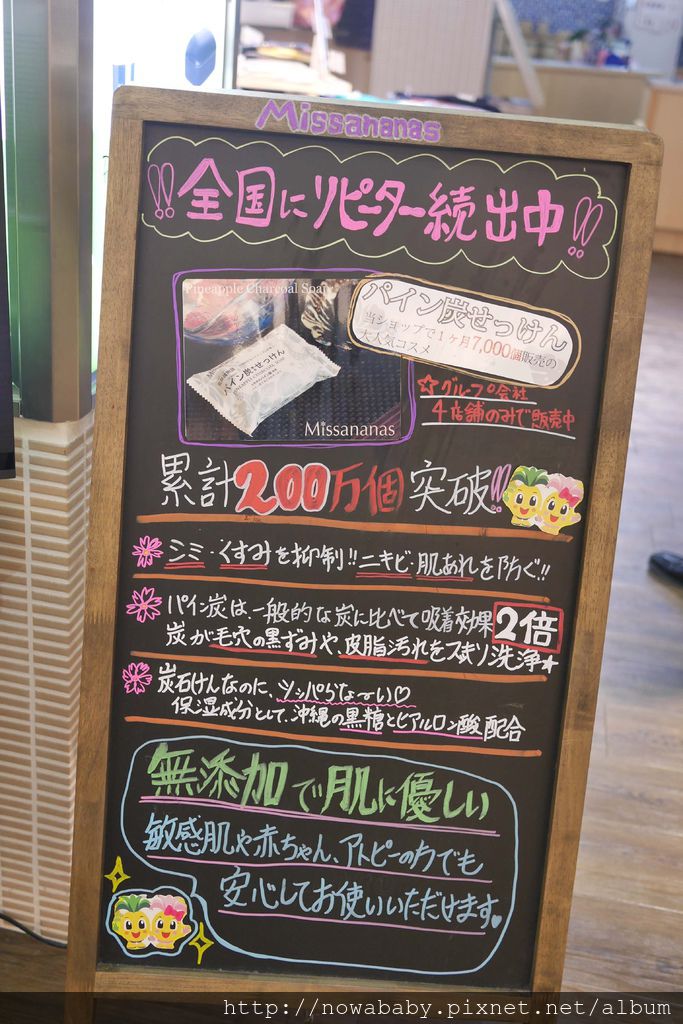 Missananas
!!全国にリピーター続出中!!
Pineapple Charcoal Soap
パイン炭せっけん
Missananas
パイン炭せっけん
当ショップで1ヶ月7,000個販売の
大人気コスメ
☆グループ会社
4店舗のみで販売中
累計200万個突破!!
シミ・くすみを抑制!!ニキビ・肌あれを防ぐ!!
パイン炭は一般的な炭に比べて吸着効果2倍
炭が毛穴の黒ずみや、皮脂汚れをスッキリ洗浄★
炭石けんなのに、ツッパらな〜い♡
保湿成分として、沖縄の黒糖とヒアルロン酸配合
無添加で肌に優しい
敏感肌や赤ちゃん、アトピーの方でも
安心してお使いいただけます。♥
http://nowababy.pixnet.net/album